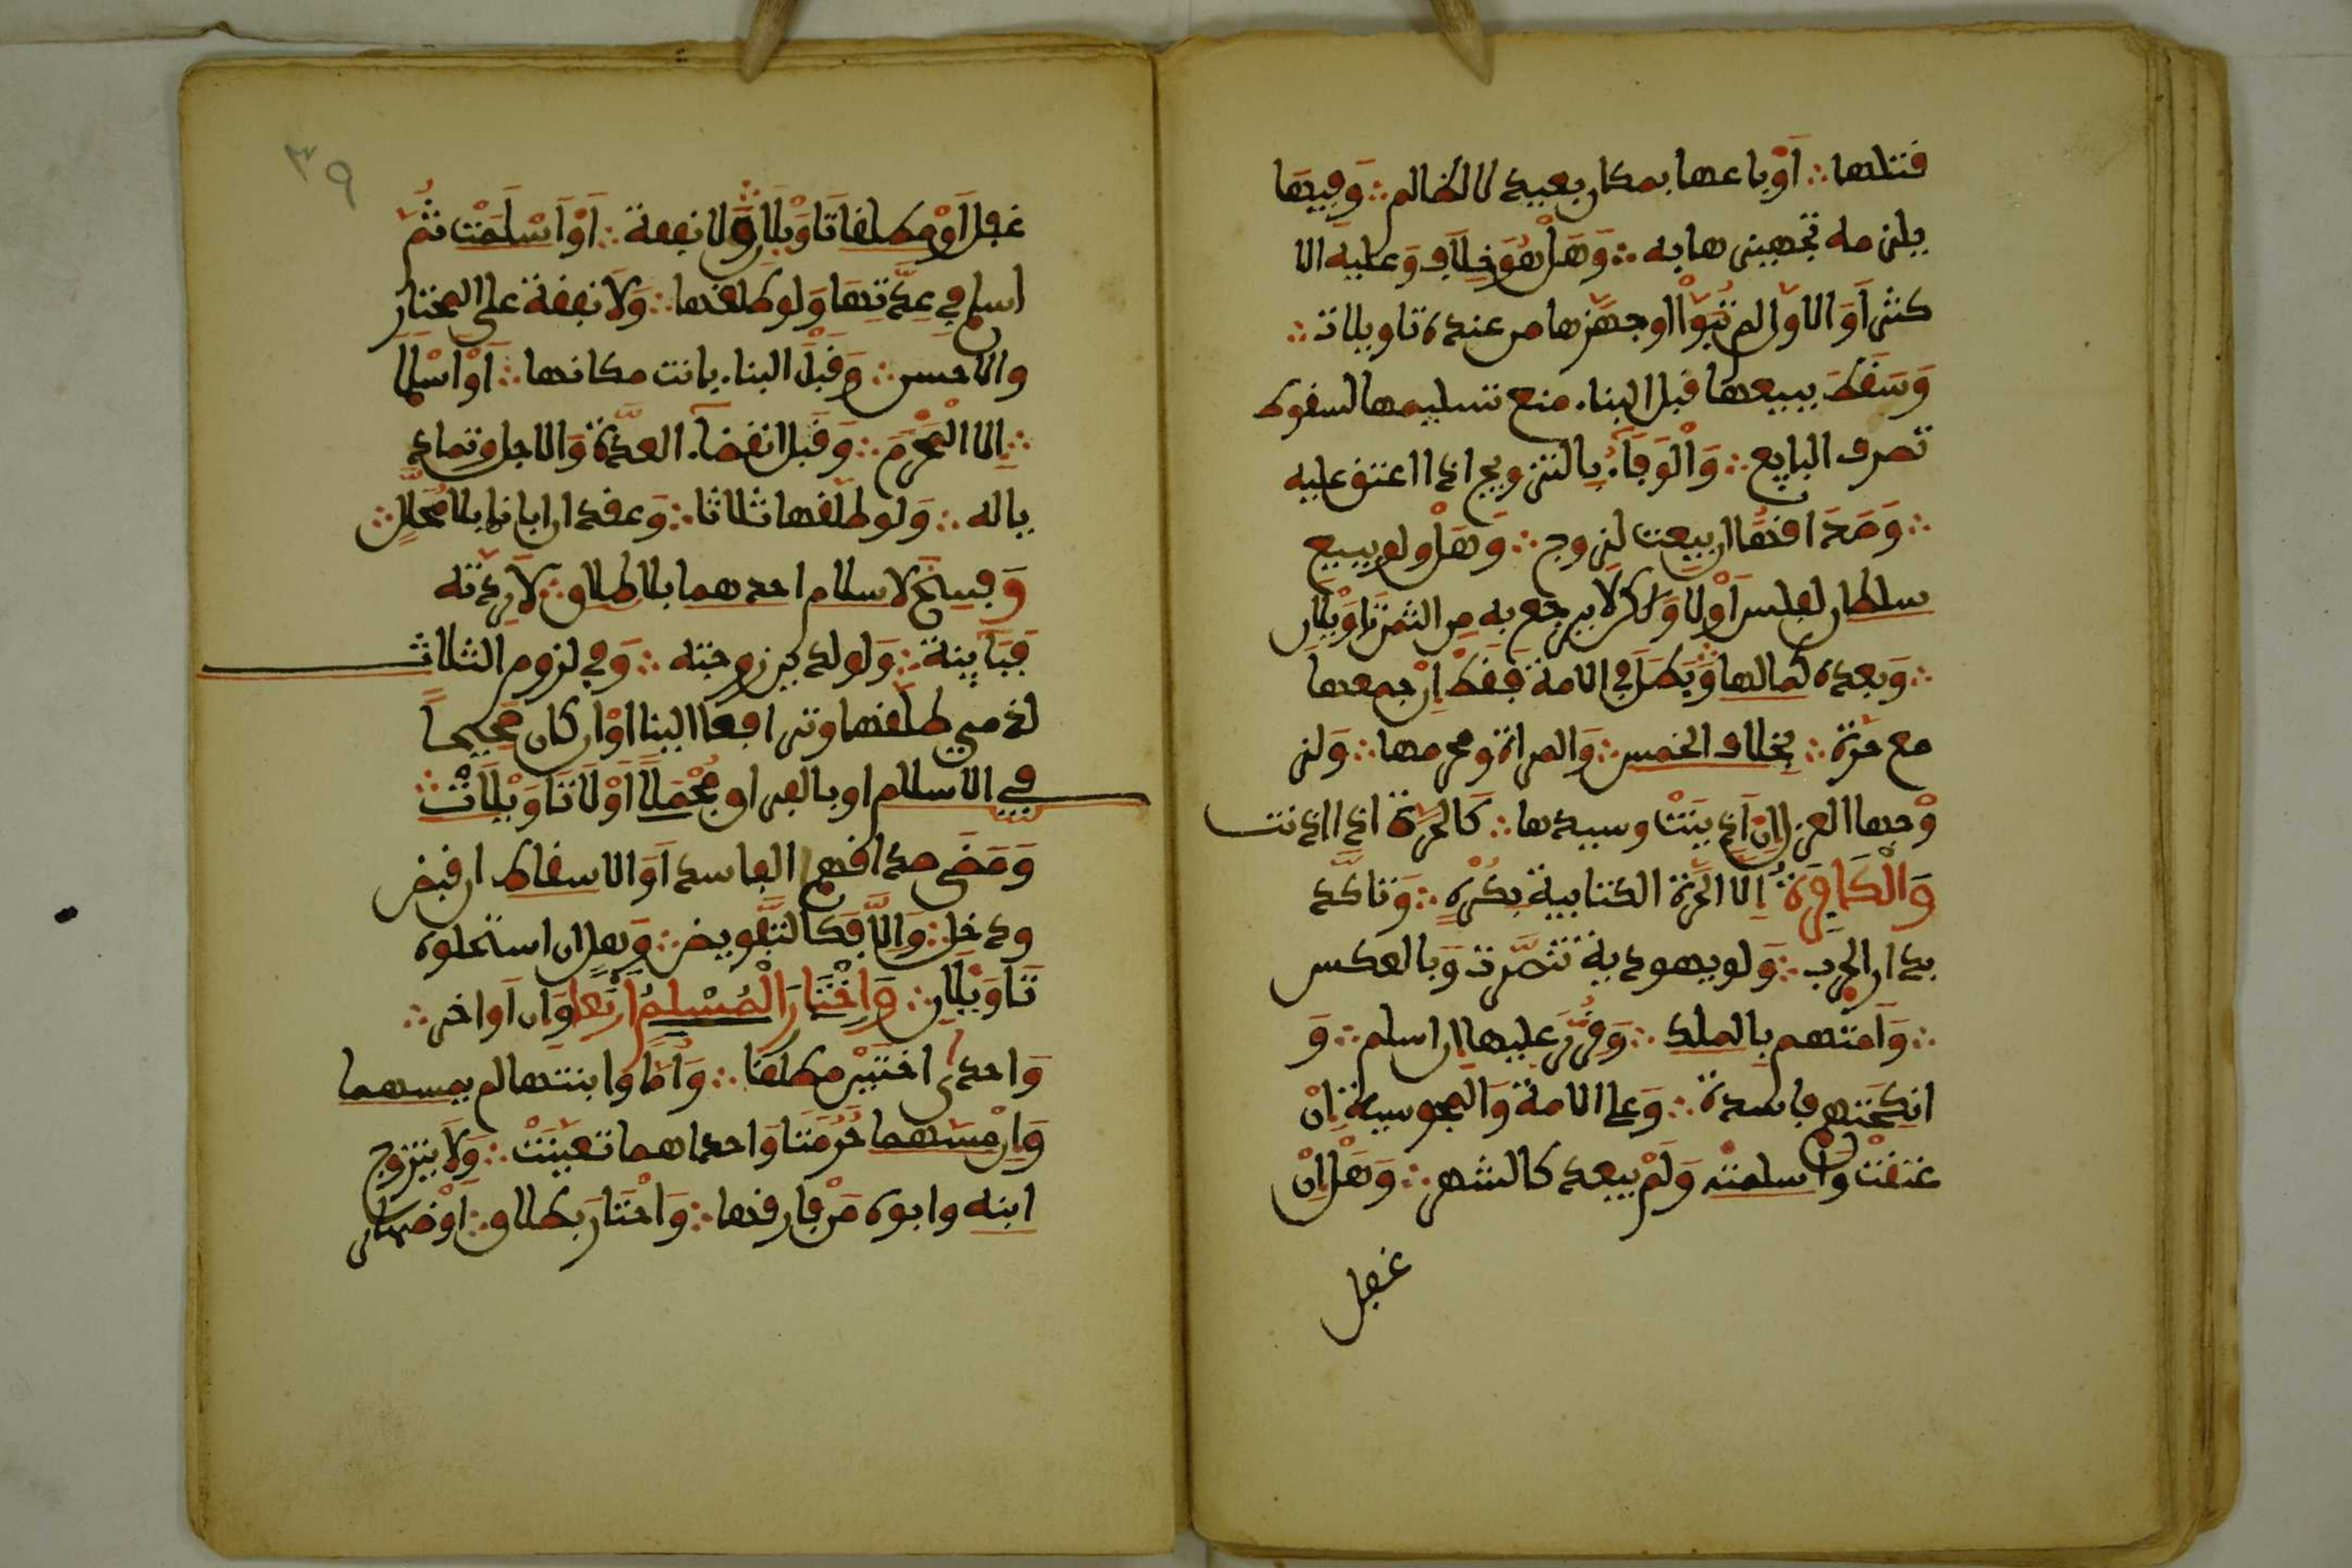 قتلها أو باعها بمكان بعيد لا لظالم وفيها
يلزمه تجهيزها به وهل هو خلاف وعليه الا
كثر أو الأول لم تبوأ أو جهزها من عنده تاويلات
وسقط ببيعها قبل البناء منع تسليمها لسقوط
تصرف البايع والوفاء بالتزويج اذا اعتق عليه
وصداقها ان بيعت لزوج وهل ولو ببيع
سلطان لفلس أو لا ولكن لا يرجع به من الثمن تاويلان
وبعده كمالها وبطل في الامة فقط ان جمعها
مع حرة بخلاف الخمس والمراة ومحرمها ولز
وجها العزل ان اذنت وسيدها كالحرة اذا اذنت
والكافرة الا الحرة الكتابية بكره وتاكد
بدار الحرب ولو يهودية تنصرت وبالعكس
وأمتهم بالملك وقرر عليها ان اسلم و
انكحتهم فاسدة وعلى الامة والمجوسية ان
عتقت وأسلمت ولم يبعد كالشهر وهل ان
غفل
٣٩
غفل أو مطلقا تاويلان ولا نفقة أو أسلمت ثم
اسلم في عدتها ولو طلقها ولا نفقة على المختار
والاحسن وقبل البناء بانت مكانها أو أسلما
الا المحرم وقبل انقضاء العدة والاجل وتماديا
له ولو طلقها ثلاثا وعقد ان ابانها بلا محلل
وفسخ لاسلام احدهما بلا طلاق لا ردته
فباينة ولو لدين زوجته وفي لزوم الثلاث
لذمي طلقها وترافعا الينا أو ان كان صحيحا
في الاسلام او بالفراق مجملا أو لا تاويلات
ومضى صداقهم الفاسد أو الاسقاط ان قبض
ودخل والا فكالتفويض وهل ان استحلوه
تاويلان واختار المسلم أربعا وان أواخر
واحدى اختين مطلقا وأما وابنتها لم يمسهما
وان مسهما حرمتا واحداهما تعينت ولا يتزوج
ابنه وابوه من فارقها واختار بطلاق أو ظهار